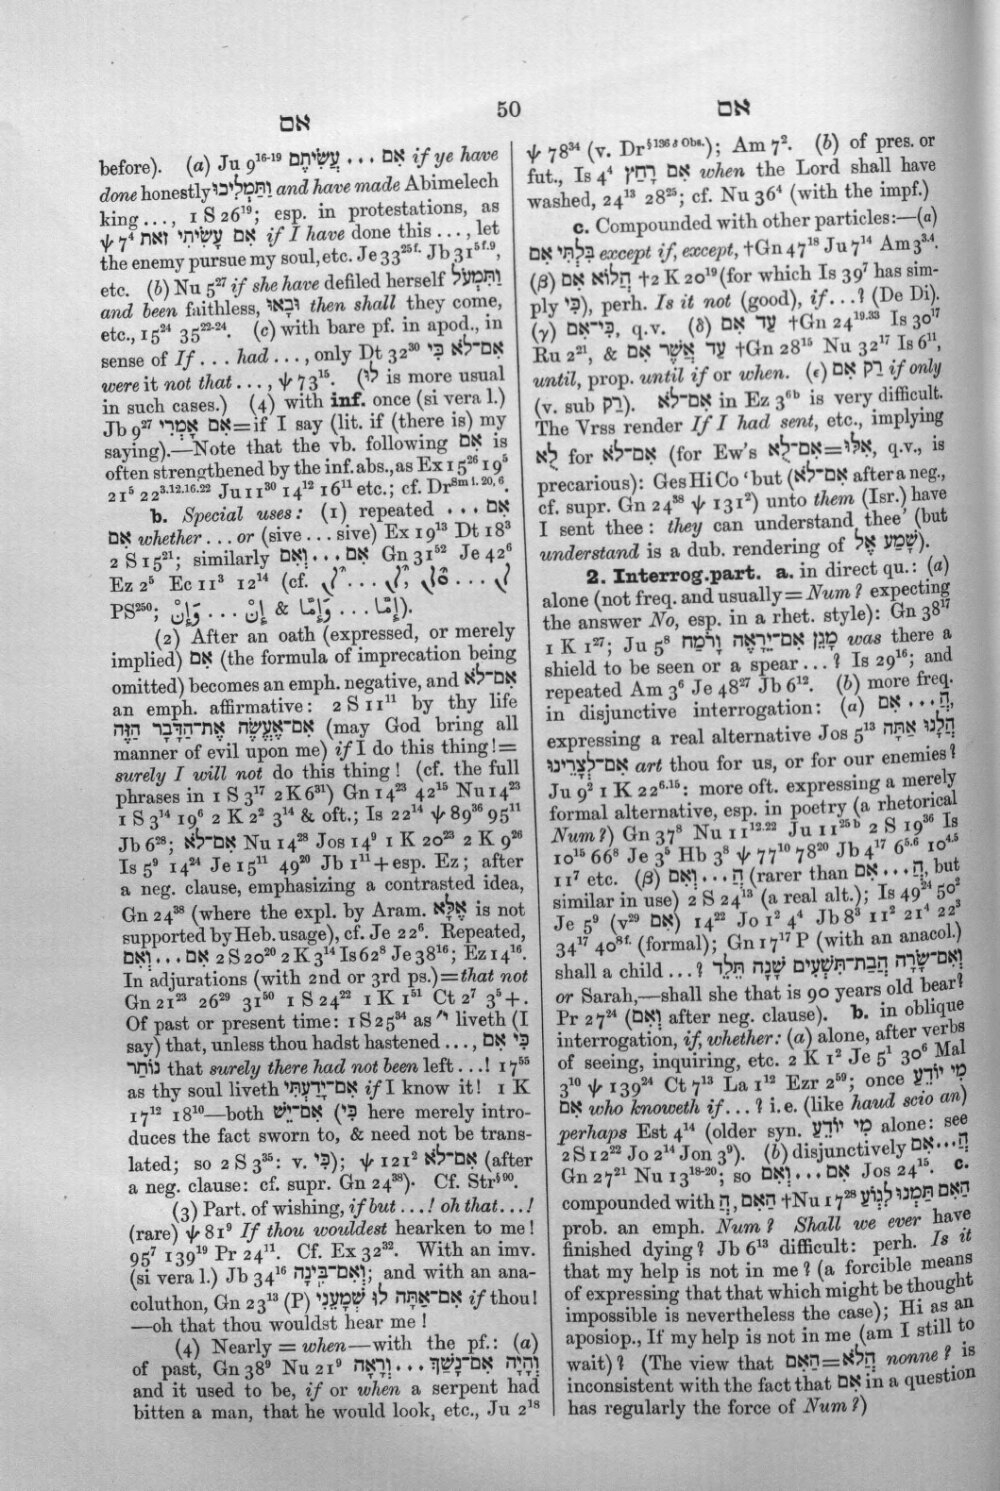 אם
50
אם
before). (a) Ju 9¹⁶⁻¹⁹ אִם ... עֲשִׂיתֶם if ye have
done honestly וַתַּמְלִיכוּ and have made Abimelech
king ..., 1 S 26¹⁹; esp. in protestations, as
ψ 7⁴ אִם עָשִׂיתִי זאֹת if I have done this ..., let
the enemy pursue my soul, etc. Je 33²⁵ᶠ· Jb 31⁵ᶠ·⁹,
etc. (b) Nu 5²⁷ if she have defiled herself וַתִּמְעֹל
and been faithless, וּבָאוּ then shall they come,
etc., 15²⁴ 35²²⁻²⁴. (c) with bare pf. in apod., in
sense of If ... had ..., only Dt 32³⁰ אִם־לֹא כִּי
were it not that ..., ψ 73¹⁵. (לוּ is more usual
in such cases.) (4) with inf. once (si vera l.)
Jb 9²⁷ אִם אָמְרִי=if I say (lit. if (there is) my
saying).—Note that the vb. following אִם is
often strengthened by the inf. abs., as Ex 15²⁶ 19⁵
21⁵ 22³·¹²·¹⁶·²² Ju 11³⁰ 14¹² 16¹¹ etc.; cf. Dr
b. Special uses: (1) repeated אִם ...
אִם whether ... or (sive ... sive) Ex 19¹³ Dt 18³
2 S 15²¹; similarly אִם ... וְאִם Gn 31⁵² Je 42⁶
Ez 2⁵ Ec 11³ 12¹⁴ (cf.
PS²⁵⁰; وَإِنْ ... إِنْ & وَإِمَّا ... إِمَّا).
(2) After an oath (expressed, or merely
implied) אִם (the formula of imprecation being
omitted) becomes an emph. negative, and אִם־לֹא
an emph. affirmative: 2 S 11¹¹ by thy life
אִם־אֶעֱשֶׂה אֶת־הַדָּבָר הַזֶּה (may God bring all
manner of evil upon me) if I do this thing!=
surely I will not do this thing! (cf. the full
phrases in 1 S 3¹⁷ 2 K 6³¹) Gn 14²³ 42¹⁵ Nu 14²³
1 S 3¹⁴ 19⁶ 2 K 2² 3¹⁴ & oft.; Is 22¹⁴ ψ 89³⁶ 95¹¹
Jb 6²⁸; אִם־לֹא Nu 14²⁸ Jos 14⁹ 1 K 20²³ 2 K 9²⁶
Is 5⁹ 14²⁴ Je 15¹¹ 49²⁰ Jb 1¹¹ + esp. Ez; after
a neg. clause, emphasizing a contrasted idea,
Gn 24³⁸ (where the expl. by Aram. אֶלָּא is not
supported by Heb. usage), cf. Je 22⁶. Repeated,
אִם ... וְאִם 2 S 20²⁰ 2 K 3¹⁴ Is 62⁸ Je 38¹⁶; Ez 14¹⁶.
In adjurations (with 2nd or 3rd ps.)=that not
Gn 21²³ 26²⁹ 31⁵⁰ 1 S 24²² 1 K 1⁵¹ Ct 2⁷ 3⁵+.
Of past or present time: 1 S 25³⁴ as י״ liveth (I
say) that, unless thou hadst hastened ..., כִּי אִם
נוֹתַר that surely there had not been left ...! 17⁵⁵
as thy soul liveth אִם־יָדַעְתִּי if I know it! 1 K
17¹² 18¹⁰—both אִם־יֵשׁ (כִּי here merely intro-
duces the fact sworn to, & need not be trans-
lated; so 2 S 3³⁵: v. כִּי); ψ 121² אִם־לֹא (after
a neg. clause: cf. supr. Gn 24³⁸). Cf. Str§⁹⁰.
(3) Part. of wishing, if but ...! oh that ...!
(rare) ψ 81⁹ If thou wouldest hearken to me!
95⁷ 139¹⁹ Pr 24¹¹. Cf. Ex 32³². With an imv.
(si vera l.) Jb 34¹⁶ וְאִם־בִּינָה; and with an ana-
coluthon, Gn 23¹³ (P) אִם־אַתָּה לוּ שְׁמָעֵנִי if thou!
—oh that thou wouldst hear me!
(4) Nearly = when—with the pf.: (a)
of past, Gn 38⁹ Nu 21⁹ וְהָיָה אִם־נָשַׁךְ ... וְרָאָה
and it used to be, if or when a serpent had
bitten a man, that he would look, etc., Ju 2¹⁸
ψ 78³⁴ (v. Dr§¹³⁶ ᵟ ᴼᵇˢ·); Am 7². (b) of pres. or
fut., Is 4⁴ אִם רָחַץ when the Lord shall have
washed, 24¹³ 28²⁵; cf. Nu 36⁴ (with the impf.)
c. Compounded with other particles:—(α)
בִּלְתִּי אִם except if, except, †Gn 47¹⁸ Ju 7¹⁴ Am 3³·⁴.
(β) הֲלוֹא אִם †2 K 20¹⁹ (for which Is 39⁷ has sim-
ply כִּי), perh. Is it not (good), if ...? (De Di).
(γ) כִּי־אִם, q.v. (δ) עַד אִם †Gn 24¹⁹·³³ Is 30¹⁷
Ru 2²¹, & עַד אֲשֶׁר אִם †Gn 28¹⁵ Nu 32¹⁷ Is 6¹¹,
until, prop. until if or when. (ε) רַק אִם if only
(v. sub רַק). אִם־לֹא in Ez 3⁶ᵇ is very difficult.
The Vrss render If I had sent, etc., implying
לֻא for אִם־לֹא (for Ew's אִם־לֻא=אִלּוּ, q.v., is
precarious): Ges Hi Co 'but (אִם־לֹא after a neg.,
cf. supr. Gn 24³⁸ ψ 131²) unto them (Isr.) have
I sent thee: they can understand thee' (but
understand is a dub. rendering of שָׁמַע אֶל).
2. Interrog. part. a. in direct qu.: (a)
alone (not freq. and usually=Num? expecting
the answer No, esp. in a rhet. style): Gn 38¹⁷
1 K 1²⁷; Ju 5⁸ מָגֵן אִם־יֵרָאֶה וָרֹמַח was there a
shield to be seen or a spear ...? Is 29¹⁶; and
repeated Am 3⁶ Je 48²⁷ Jb 6¹². (b) more freq.
in disjunctive interrogation: (α) הֲ ... אִם,
expressing a real alternative Jos 5¹³ הֲלָנוּ אַתָּה
אִם־לְצָרֵינוּ art thou for us, or for our enemies?
Ju 9² 1 K 22⁶·¹⁵: more oft. expressing a merely
formal alternative, esp. in poetry (a rhetorical
Num?) Gn 37⁸ Nu 11¹²·²² Ju 11²⁵ᵇ 2 S 19³⁶ Is
10¹⁵ 66⁸ Je 3⁵ Hb 3⁸ ψ 77¹⁰ 78²⁰ Jb 4¹⁷ 6⁵·⁶ 10⁴·⁵
11⁷ etc. (β) הֲ ... וְאִם (rarer than הֲ ... אִם, but
similar in use) 2 S 24¹³ (a real alt.); Is 49²⁴ 50²
Je 5⁹ (v²⁹ אִם) 14²² Jo 1² 4⁴ Jb 8³ 11² 21⁴ 22³
34¹⁷ 40⁸ᶠ· (formal); Gn 17¹⁷ P (with an anacol.)
shall a child ...? וְאִם־שָׂרָה הֲבַת־תִּשְׁעִים שָׁנָה תֵּלֵד
or Sarah,—shall she that is 90 years old bear?
Pr 27²⁴ (וְאִם after neg. clause). b. in oblique
interrogation, if, whether: (a) alone, after verbs
of seeing, inquiring, etc. 2 K 1² Je 5¹ 30⁶ Mal
3¹⁰ ψ 139²⁴ Ct 7¹³ La 1¹² Ezr 2⁵⁹; once מִי יוֹדֵעַ
אִם who knoweth if ...? i.e. (like haud scio an)
perhaps Est 4¹⁴ (older syn. מִי יוֹדֵעַ alone: see
2 S 12²² Jo 2¹⁴ Jon 3⁹). (b) disjunctively הֲ ... אִם
Gn 27²¹ Nu 13¹⁸⁻²⁰; so אִם ... וְאִם Jos 24¹⁵. c.
compounded with הֲ, הַאִם †Nu 17²⁸ הַאִם תַּמְנוּ לִגְוֹעַ
prob. an emph. Num? Shall we ever have
finished dying? Jb 6¹³ difficult: perh. Is it
that my help is not in me? (a forcible means
of expressing that that which might be thought
impossible is nevertheless the case); Hi as an
aposiop., If my help is not in me (am I still to
wait)? (The view that הַאִם=הֲלֹא nonne? is
inconsistent with the fact that אִם in a question
has regularly the force of Num?)